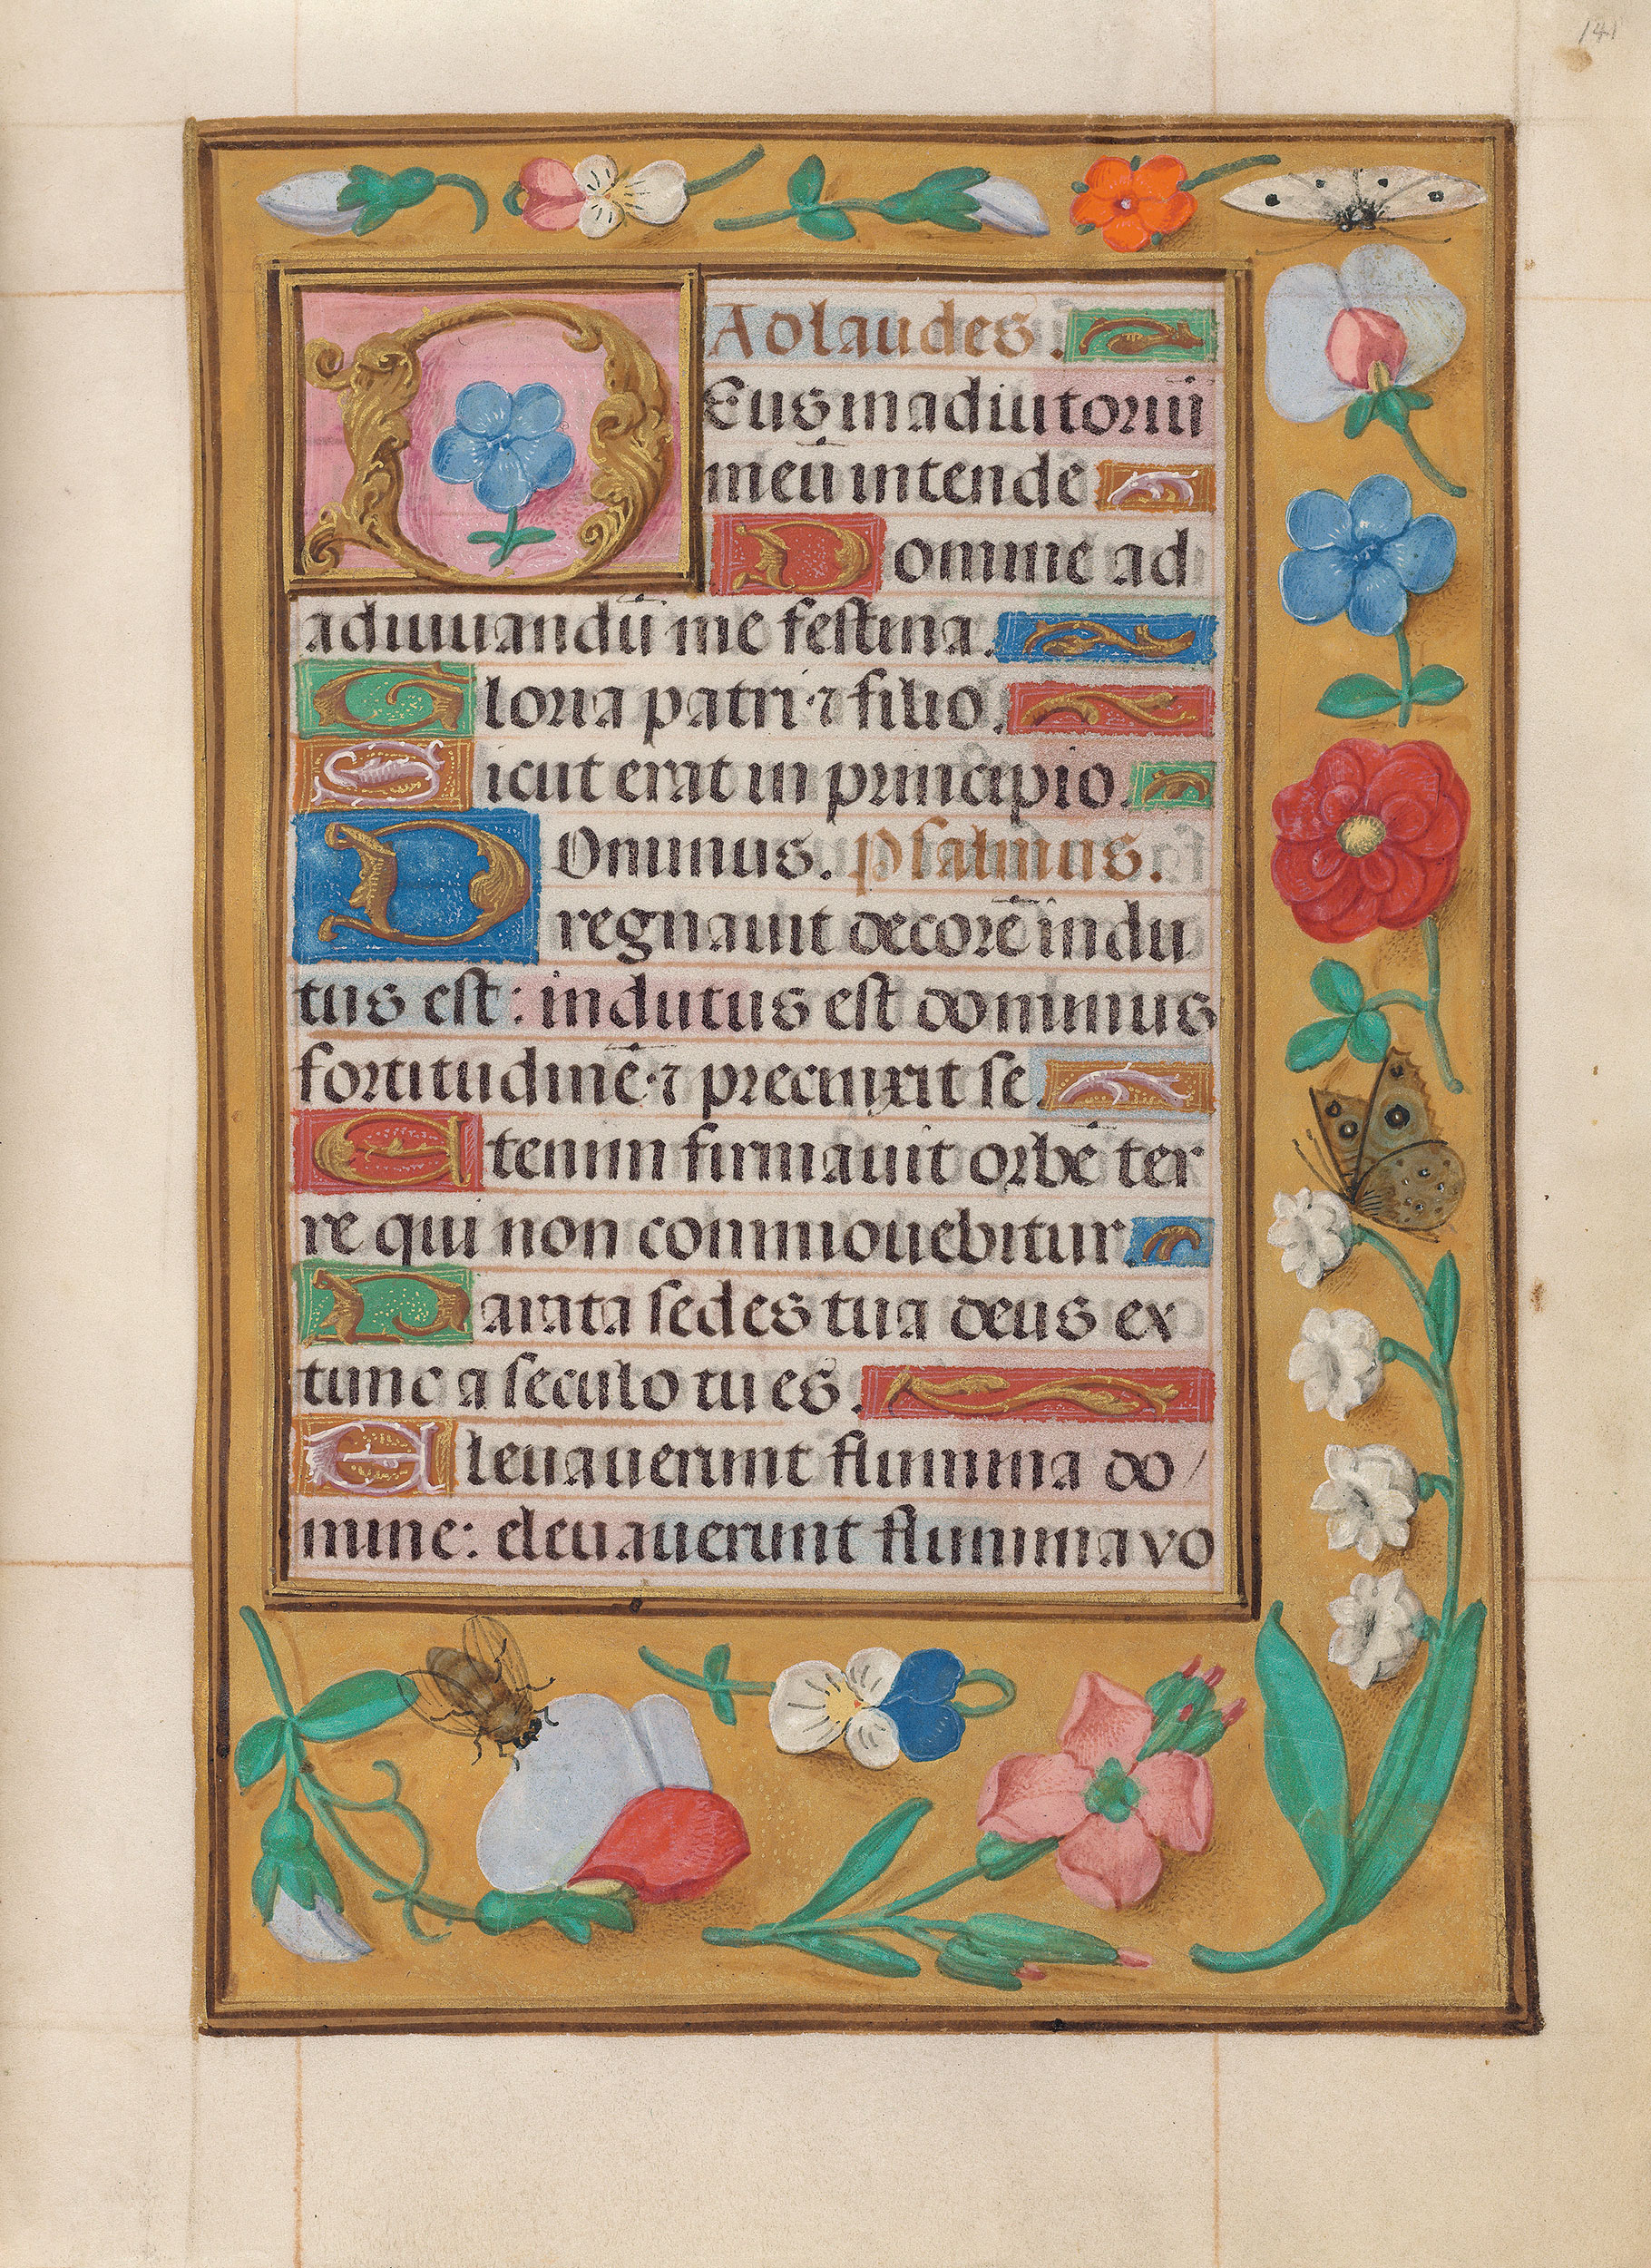 141
Ad laudes.
DEus in adiutoriū
meū intende
Domine ad
adiuuandū me festina.
Gloria patri ⁊ filio.
Sicut erat in principio.
DOminus. Psalmus.
regnauit decorē indu
tus est: indutus est dominus
fortitudinē ⁊ precinxit se.
Etenim firmauit orbē ter
re qui non commouebitur.
Parata sedes tua deus ex
tunc a seculo tu es.
Eleuauerunt flumina do/
mine: eleuauerunt flumina vo